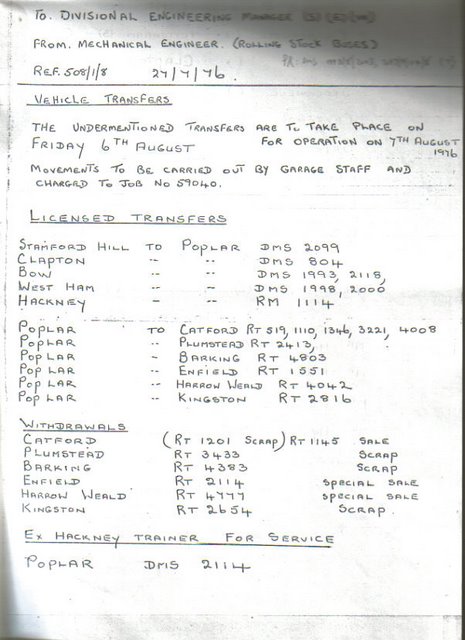 TO. DIVISIONAL ENGINEERING MANAGER
FROM. MECHANICAL ENGINEER. (ROLLING STOCK BUSES)
REF. 508/1/8 27/7/76.
VEHICLE TRANSFERS
THE UNDERMENTIONED TRANSFERS ARE TO TAKE PLACE ON
FRIDAY 6TH AUGUST FOR OPERATION ON 7TH AUGUST
1976
MOVEMENTS TO BE CARRIED OUT BY GARAGE STAFF AND
CHARGED TO JOB NO 59040.
LICENSED TRANSFERS
STAMFORD HILL TO POPLAR DMS 2099
CLAPTON -- -- DMS 804
BOW -- -- DMS 1993, 2118,
WEST HAM -- -- DMS 1998, 2000
HACKNEY -- -- RM 1114
POPLAR TO CATFORD RT 519, 1110, 1346, 3221, 4008
POPLAR -- PLUMSTEAD RT 2413,
POPLAR -- BARKING RT 4803
POPLAR -- ENFIELD RT 1551
POPLAR -- HARROW WEALD RT 4042
POPLAR -- KINGSTON RT 2816
WITHDRAWALS
CATFORD (RT 1201 SCRAP) RT 1145 SALE
PLUMSTEAD RT 3433 SCRAP
BARKING RT 4383 SCRAP
ENFIELD RT 2114 SPECIAL SALE
HARROW WEALD RT 4777 SPECIAL SALE
KINGSTON RT 2654 SCRAP.
EX HACKNEY TRAINER FOR SERVICE
POPLAR DMS 2114